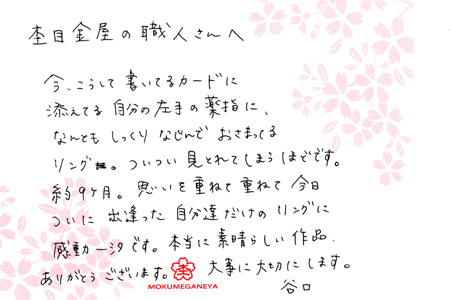 杢目金屋の職人さんへ
今、こうして書いてるカードに
添えてる自分の左手の薬指に、
なんともしっくりなじんでおさまってる
リング。ついつい見とれてしまうほどです。
約9ヶ月。思いを重ねて重ねて今日
ついに出逢った自分達だけのリングに
感動一シオです。本当に素晴らしい作品、
ありがとうございます。大事に大切にします。
MOKUMEGANEYA
谷口